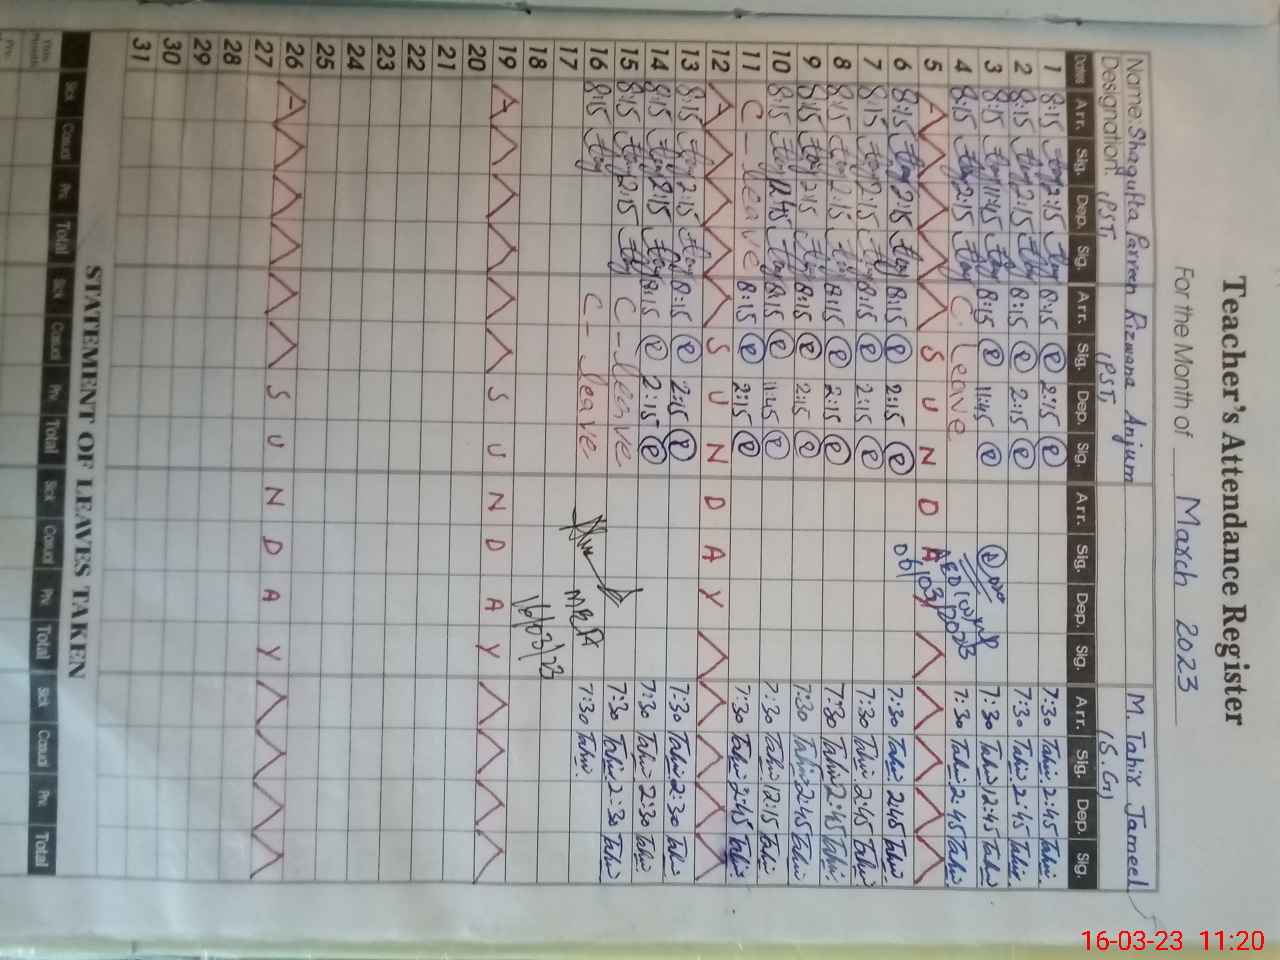 Teacher's Attendance Register
For the Month of March 2023
Name: Shagufta Parven Rizwana Anjum M. Tahir Jameel
Designation (PST) (PST) (S.G)
Dates Arr. Sig. Dep. Sig. Arr. Sig. Dep. Sig. Arr. Sig. Dep. Sig. Arr. Sig. Dep. Sig.
1 8:15 2:15 8:15 2:15 7:30 Tahir 2:45 Tahir
2 8:15 2:15 8:15 2:15 7:30 Tahir 2:45 Tahir
3 8:15 11:45 8:15 11:45 7:30 Tahir 12:45 Tahir
4 8:15 2:15 C. Leave 7:30 Tahir 2:45 Tahir
5 S U N D A Y
06/03/2023
6 8:15 2:15 8:15 2:15 7:30 Tahir 2:45 Tahir
7 8:15 2:15 8:15 2:15 7:30 Tahir 2:45 Tahir
8 8:15 2:15 8:15 2:15 7:30 Tahir 2:45 Tahir
9 8:15 2:15 8:15 2:15 7:30 Tahir 2:45 Tahir
10 8:15 8:15 11:45 7:30 Tahir 12:15 Tahir
11 C - leave 8:15 2:15 7:30 Tahir 2:45 Tahir
12 S U N D A Y
13 8:15 2:15 8:15 2:15 7:30 Tahir 2:30 Tahir
14 8:15 2:15 8:15 2:15 7:30 Tahir 2:30 Tahir
15 8:15 2:15 C - leave 7:30 Tahir 2:30 Tahir
16 8:15 C - leave 7:30 Tahir
17
18 16/03/23
19 S U N D A Y
20
21
22
23
24
25
26 S U N D A Y
27
28
29
30
31
STATEMENT OF LEAVES TAKEN
Sick Casual Prv. Total Sick Casual Prv. Total Sick Casual Prv. Total Sick Casual Prv. Total
This Month
Prv.
16-03-23 11:20